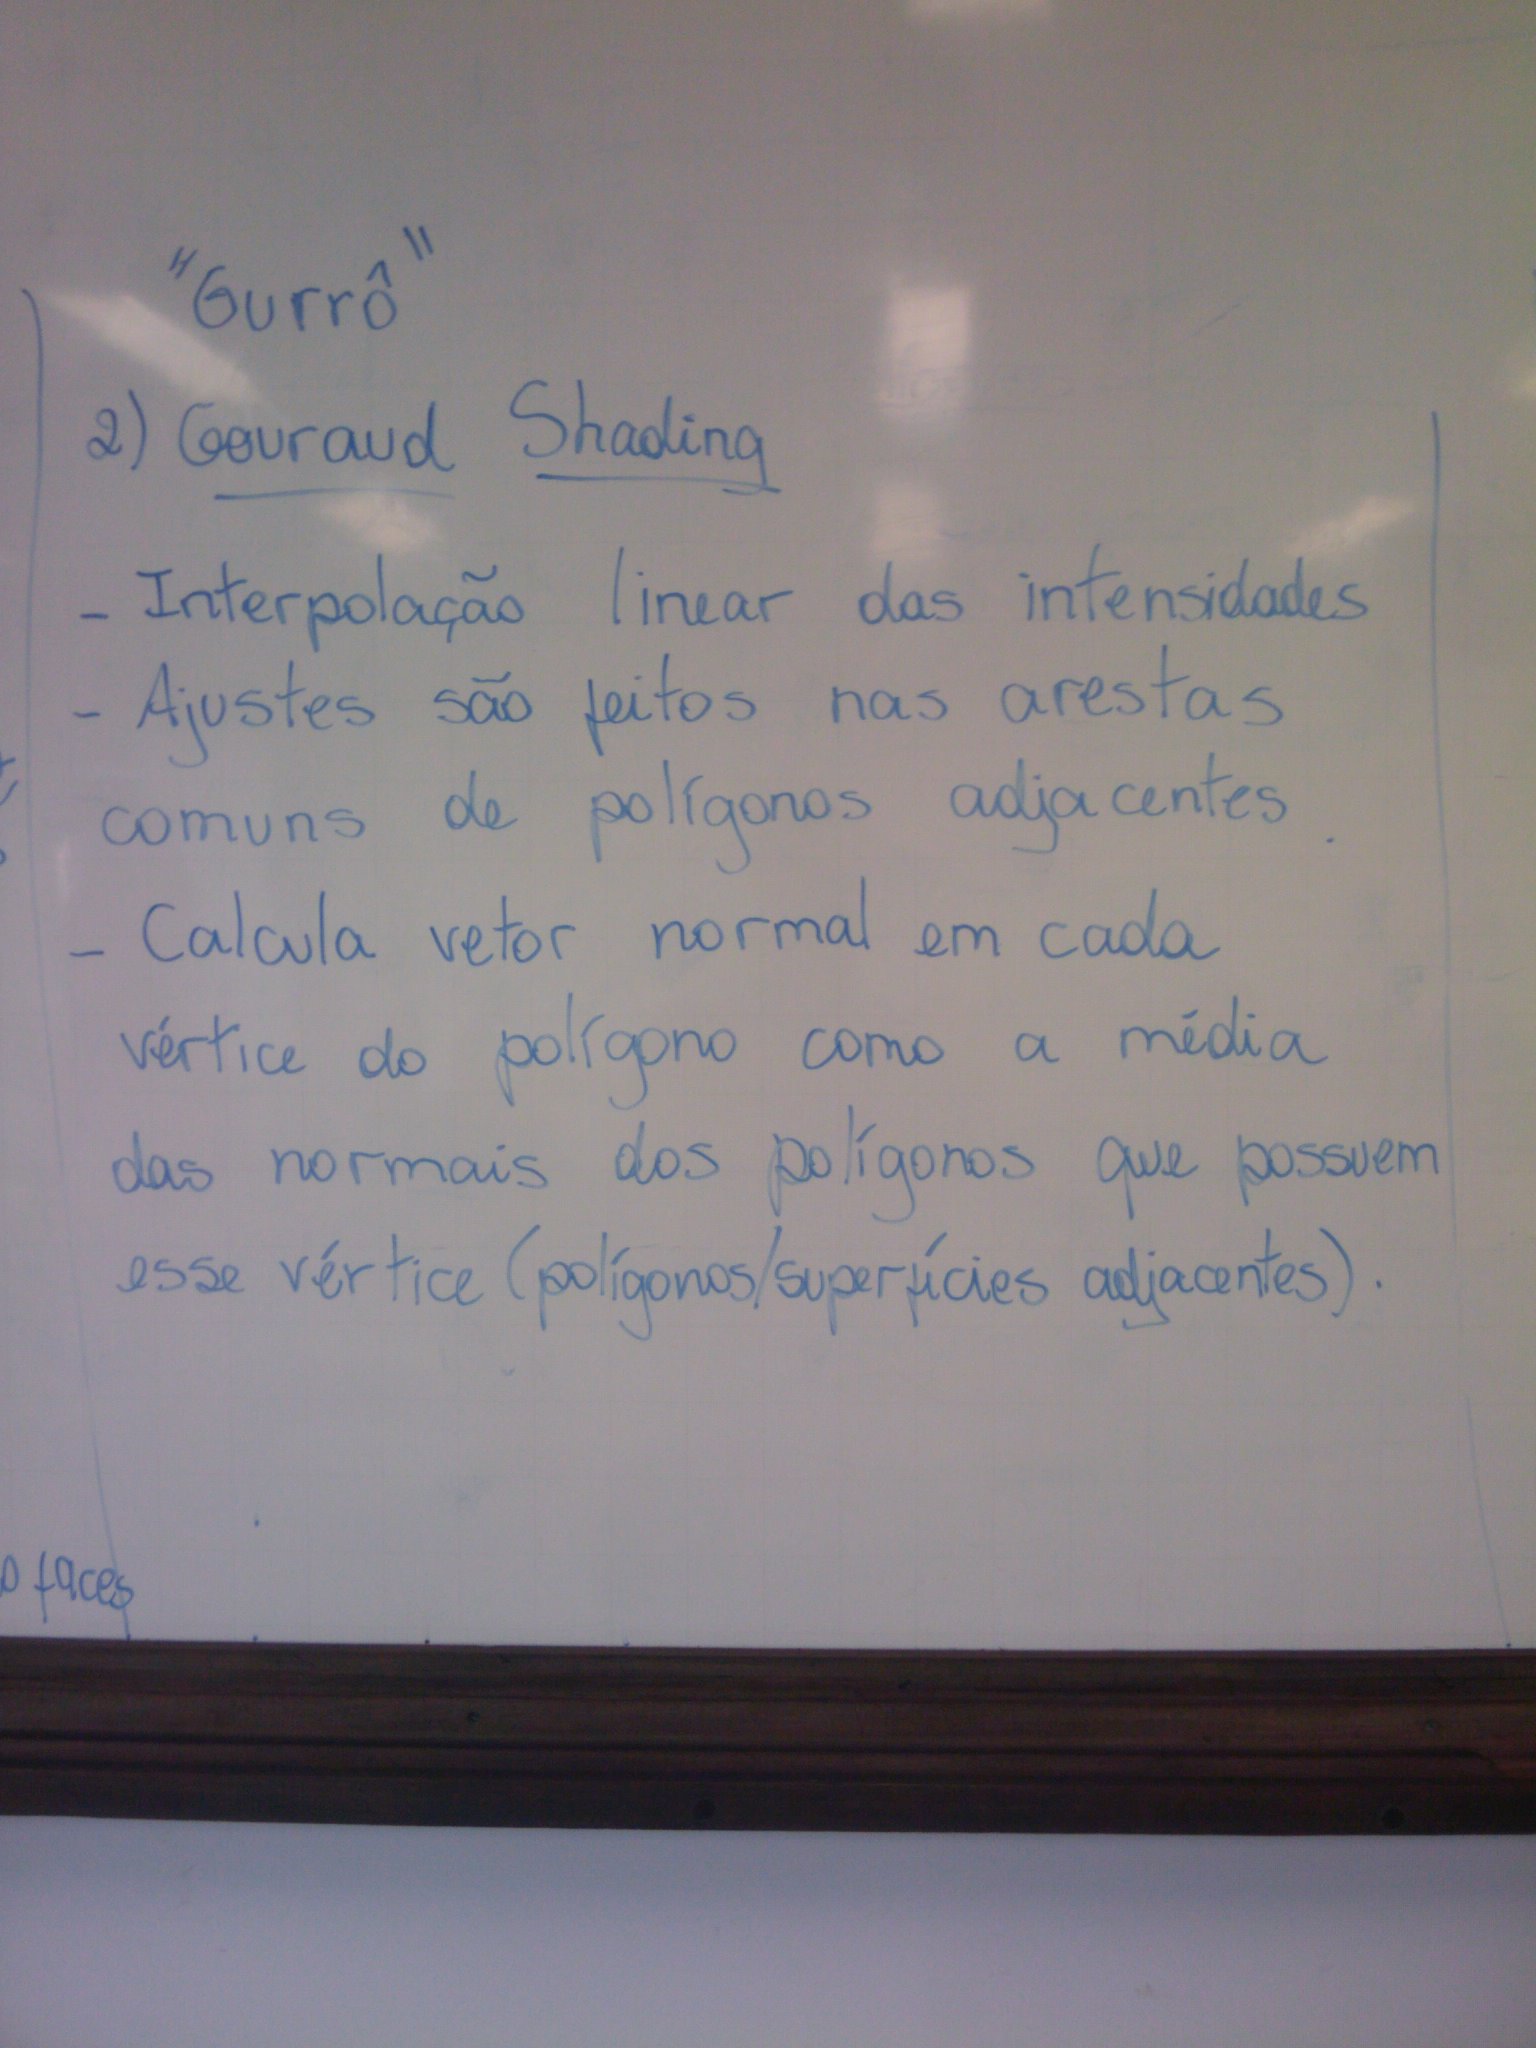 "Gurrô"
2) Gouraud Shading
- Interpolação linear das intensidades
- Ajustes são feitos nas arestas
comuns de polígonos adjacentes.
- Calcula vetor normal em cada
vértice do polígono como a média
das normais dos polígonos que possuem
esse vértice (polígonos/superfícies adjacentes).
faces